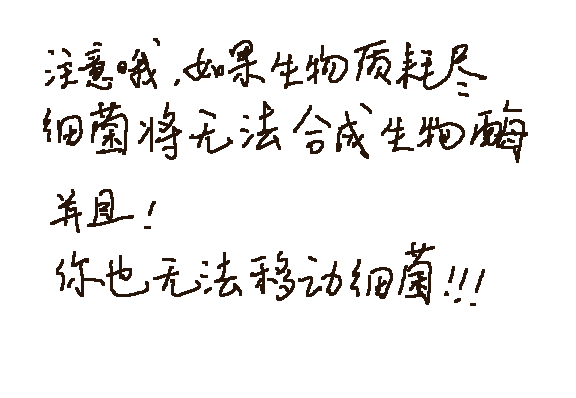 注意哦,如果生物质耗尽
细菌将无法合成生物酶
并且!
你也无法移动细菌!!!